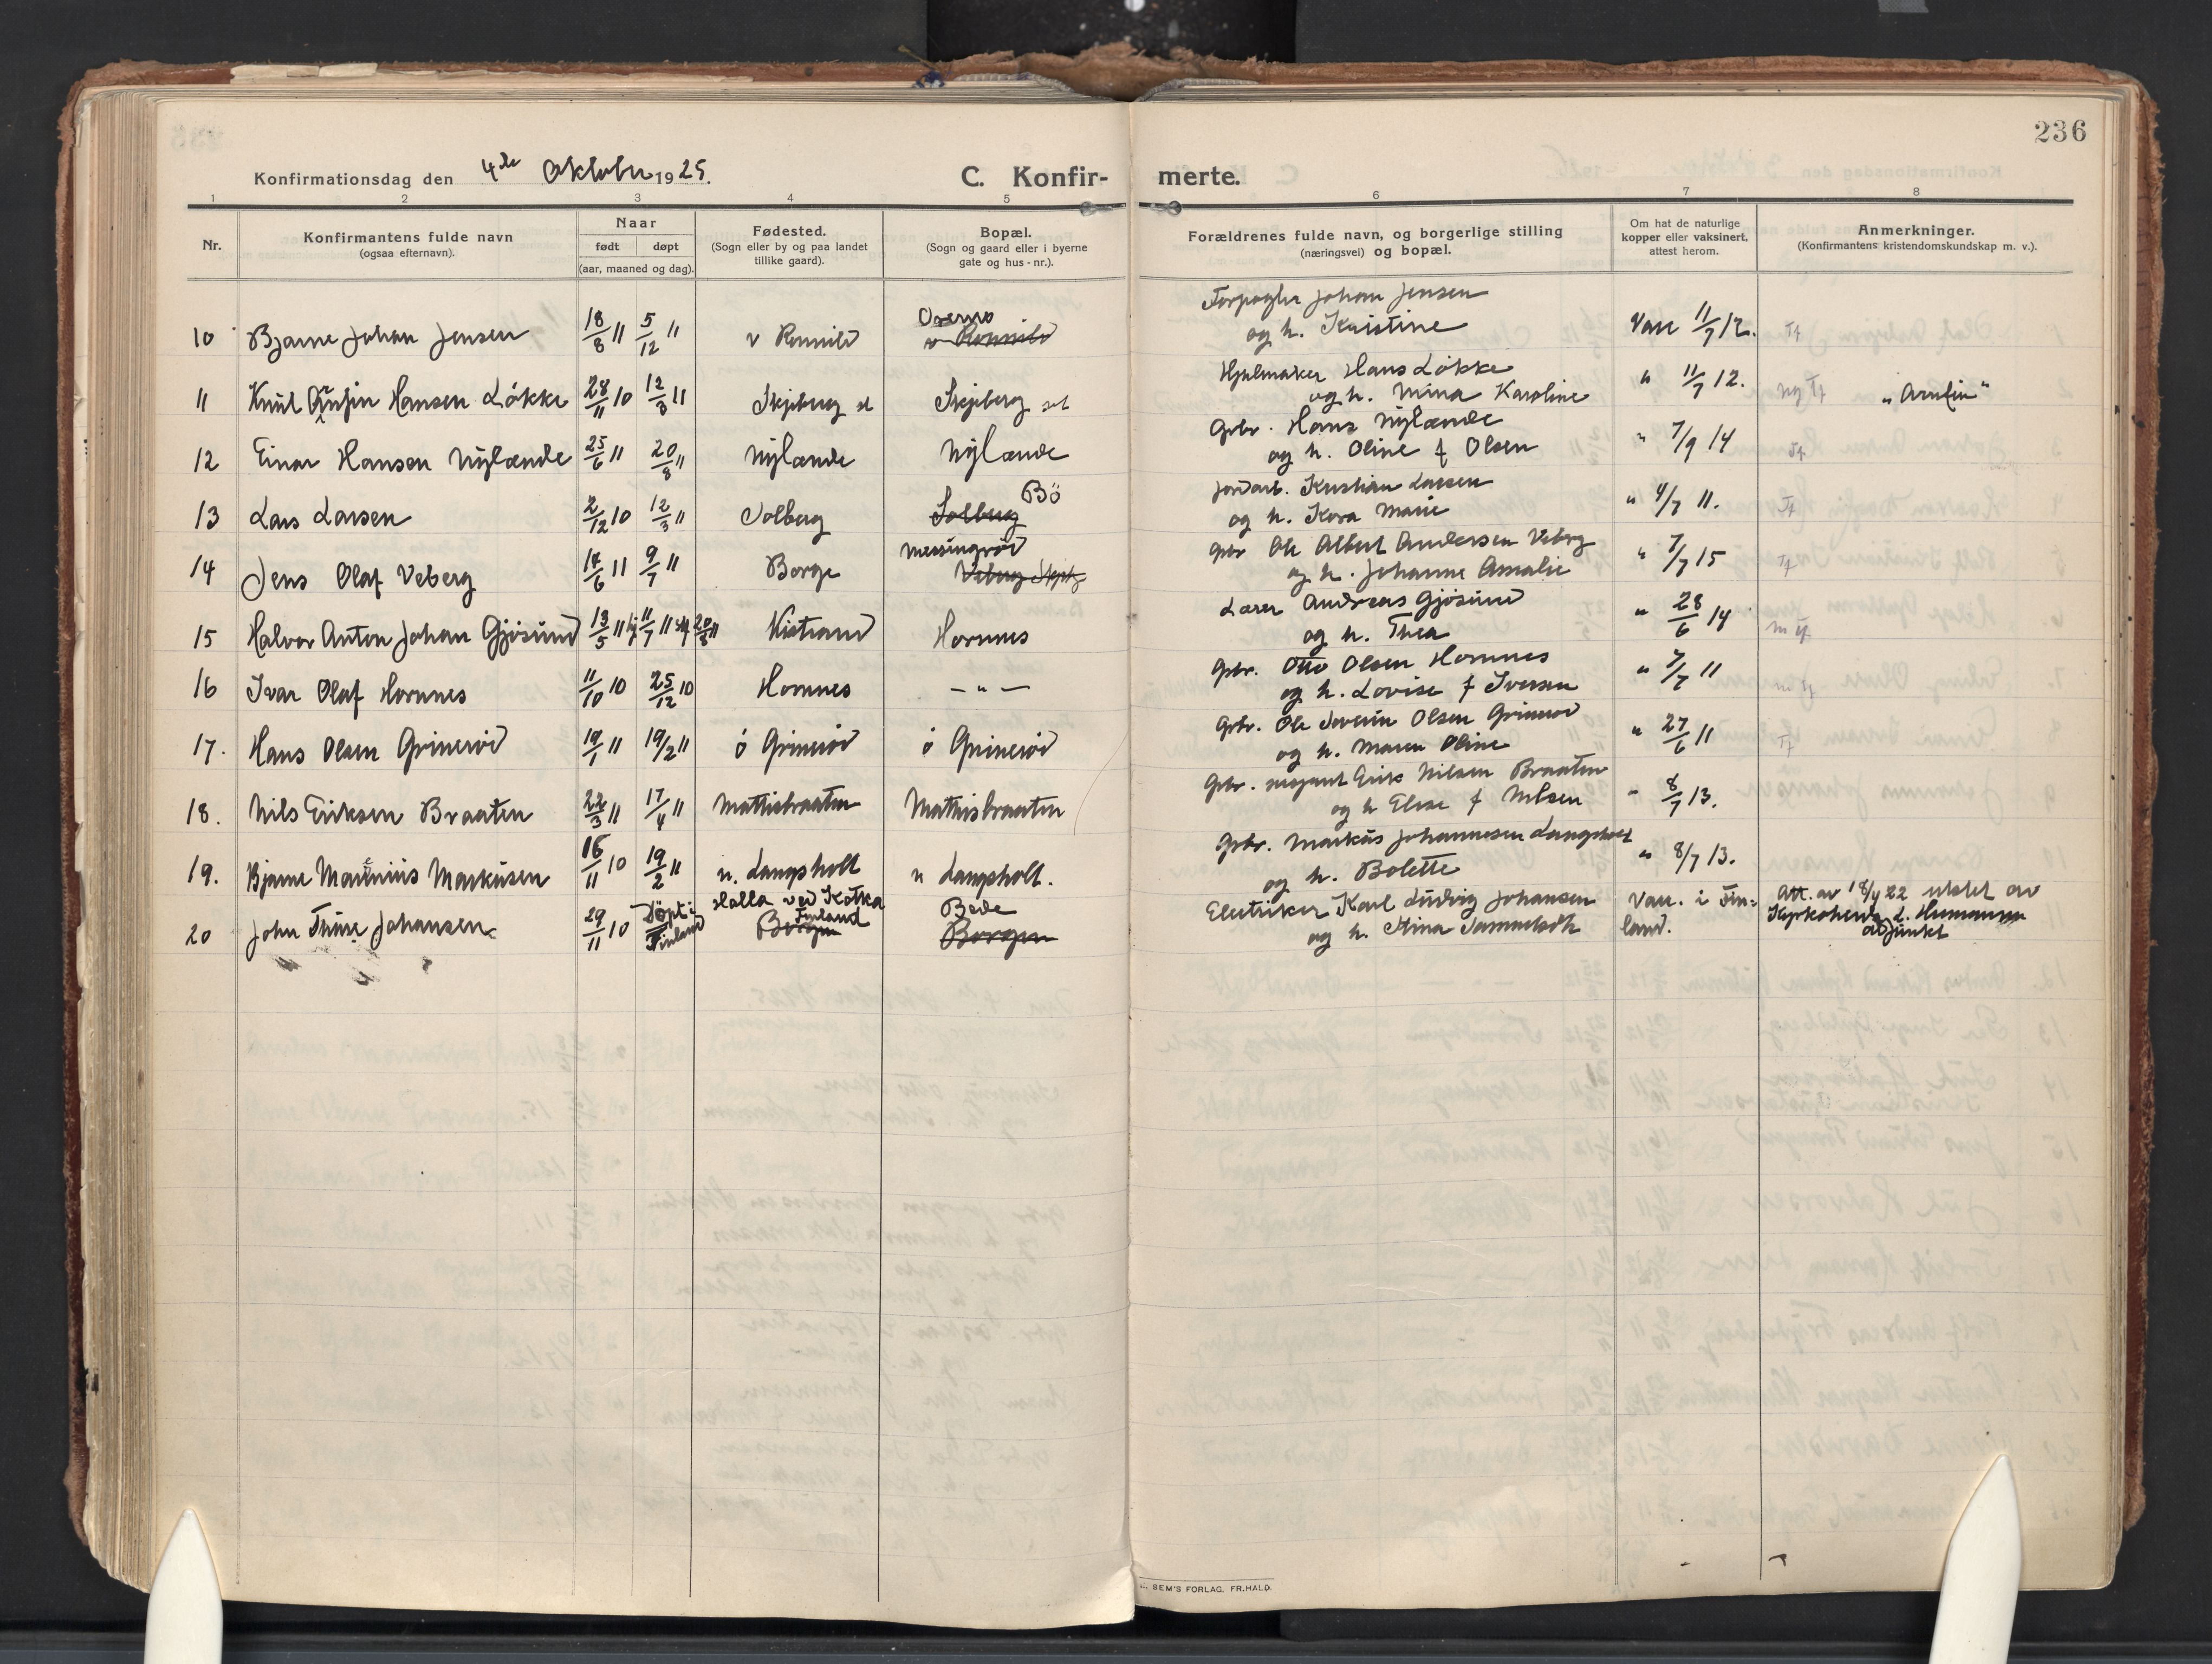 236
Konfirmationsdag den 4de Oktober 1925.
C. Konfir-
merte.
1 2 3 4 5 6 7 8
Nr.
Konfirmantens fulde navn
(ogsaa efternavn).
Naar
født døpt
(aar, maaned og dag).
Fødested.
(Sogn eller by og paa landet
tillike gaard).
Bopæl.
(Sogn og gaard eller i byerne
gate og hus-nr.).
Forældrenes fulde navn, og borgerlige stilling
(næringsvei) og bopæl.
Om hat de naturlige
kopper eller vaksinert,
attest herom.
Anmerkninger.
(Konfirmantens kristendomskundskap m. v.).
Johan Jensen
10 Bjarne Johan Jensen 18/8 11 5/12 11 v Rønnild v Rønnild og h. Kristine Vacc 11/7 12. Tf
Hjulmaker Hans Løkke
11 Knut Hansen Løkke 28/11 10 12/3 11 Skjeberg st Skjeberg st og h. Mina Karoline " 11/7 12. mg Tf "Arnfin"
Gbr. Hans Nylænde
12 Einar Hansen Nylænde 25/6 11 20/8 11 Nylænde Nylænde og h. Oline f Olsen " 7/9 14 Tf
Bö
Jordarb. Kristian Larsen
13 Lars Larsen 2/12 10 12/3 11 Solberg Solberg og h. Kora Marie " 4/7 11. Tf
Messingrød
Gbr Ole Albert Andersen Veberg
14 Jens Olaf Veberg 14/6 11 9/7 11 Borge Veberg og h. Johanne Amalie " 7/7 15 Tf
Lærer Andreas Gjøsund
15 Halvor Anton Johan Gjøsund 13/5 11 hj 11/7 11 stf 20/8 11 Kistrand Hornnes og h. Thea " 28/6 14 m Tf
Gbr. Otto Olsen Hornnes
16 Ivar Olaf Hornnes 11/10 10 25/12 10 Hornnes — " — og h. Lovise f Iversen " 7/7 11 m Tf
Gbr. Ole Severin Olsen Grinerød
17. Hans Olsen Grinerød 19/1 11 19/2 11 ö Grinerød ö Grinerød og h. Maren Oline " 27/6 11 Tf
Gbr. Erik Nilsen Braaten
18. Nils Eriksen Braaten 22/3 11 17/4 11 Mattisbraaten Mathisbraaten og h Elise f Nilsen " 8/7 13.
Gbr. Markus Johannesen Langsholt
19. Bjarne Markusen 16/11 10 19/2 11 n. Langsholt n Langsholt. og h. Bolette " 8/7 13.
Halla ved Kotka
Finland
Bede
Electriker Karl Ludvig Johansen
Vacc. i Fin-
land.
Att. av 18/4 22 utstet av
Kyrkoherde L.
adjunkt
20 John Johansen 29/11 10 Döpt i Finland Borgen Borgen og h. Stina
SEM'S FORLAG. FR.HALD.